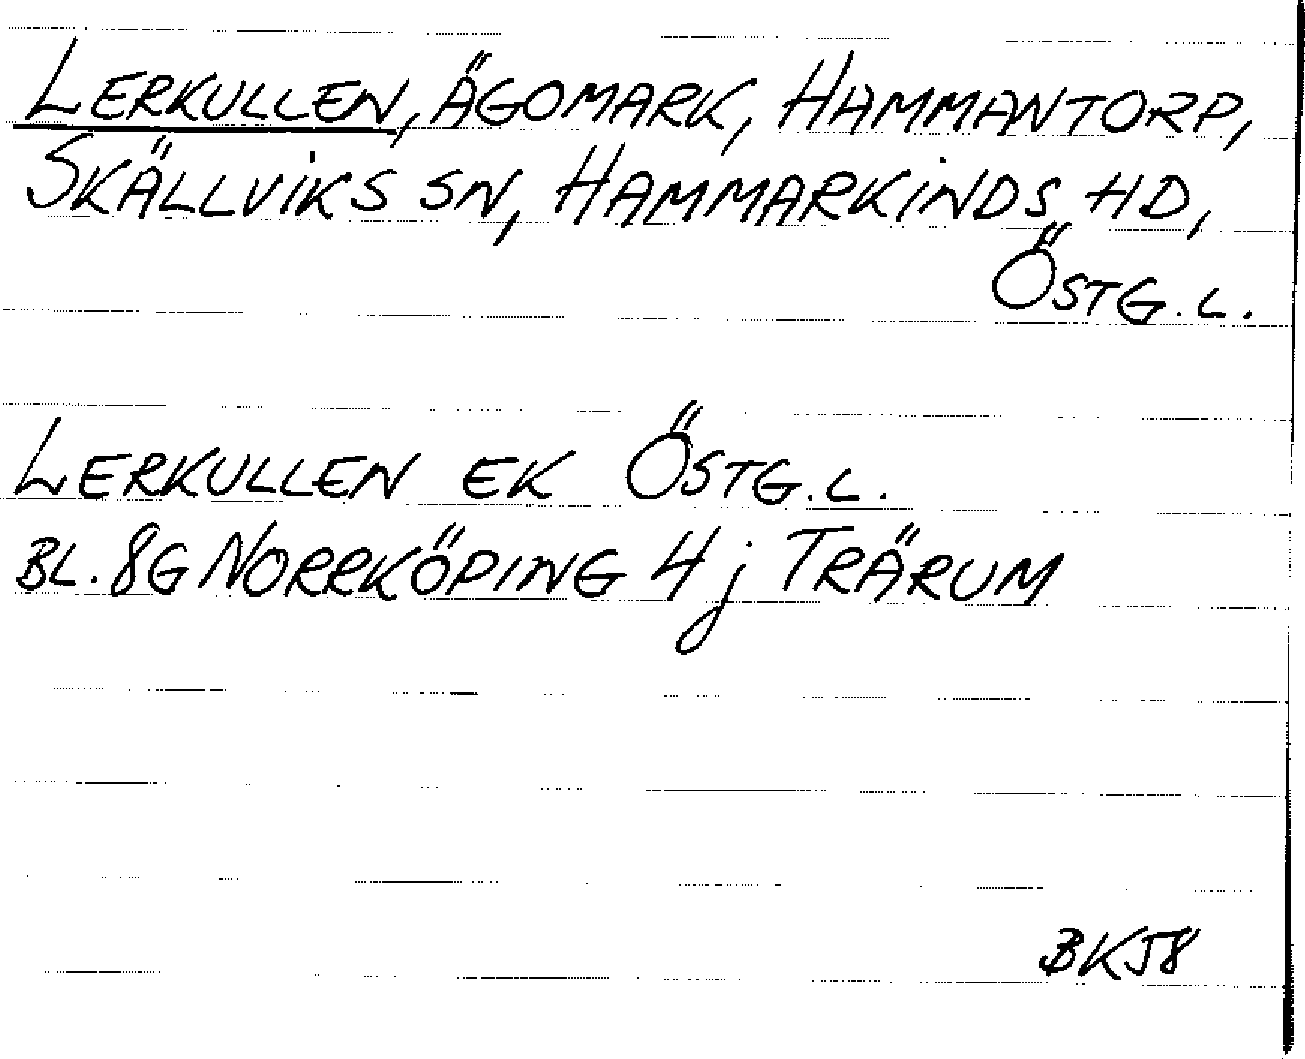 LERKULLEN, ÄGOMARK, HAMMANTORP,
SKÄLLVIKS SN, HAMMARKINDS HD,
ÖSTG. L.
LERKULLEN EK ÖSTG. L.
BL. 8G NORRKÖPING 4 j TRÄRUM
BKJ8